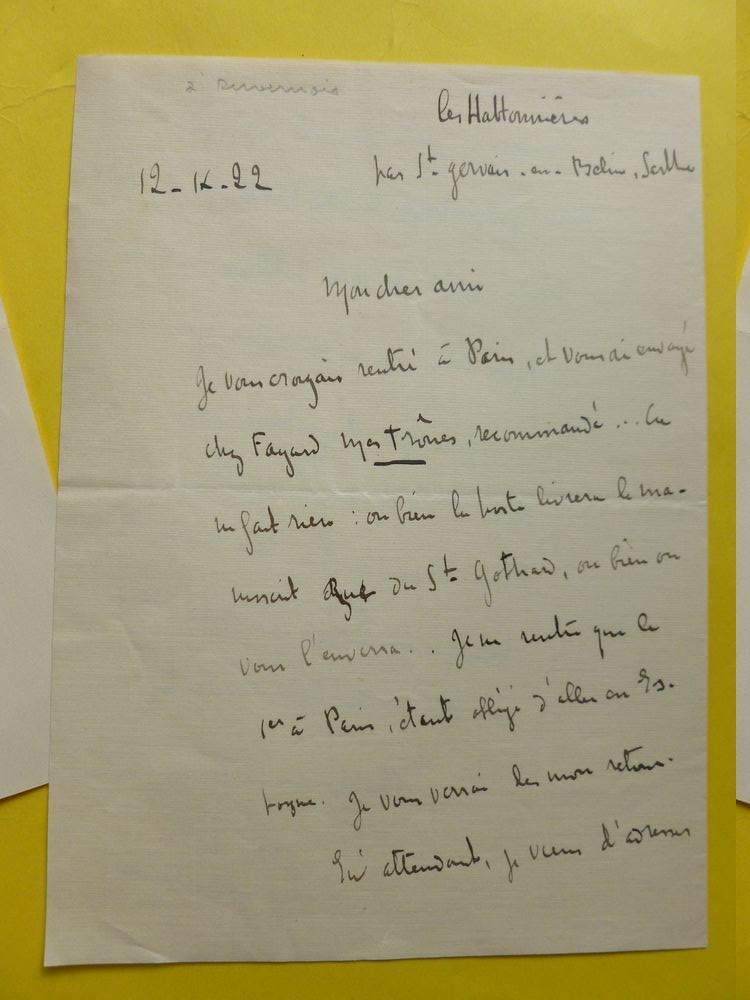 à Duvernois
les Hattonnières
12 - IX - 22
par St gervais - en - Belin, Sarthe
Mon cher ami
Je vous croyais rentré à Paris, et vous ai envoyé
chez Fayard mes Trônes, recommandé ... Ca
ne fait rien : ou bien la poste livrera le ma-
nuscrit Rue du St Gothard, ou bien on
vous l'enverra .. Je ne rentre que le
1er à Paris, étant obligé d'aller en Es-
pagne. Je vous verrai dès mon retour.
En attendant, je viens d'adresser